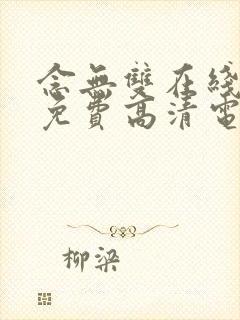 念無雙在綫
免費高清電
柳梁